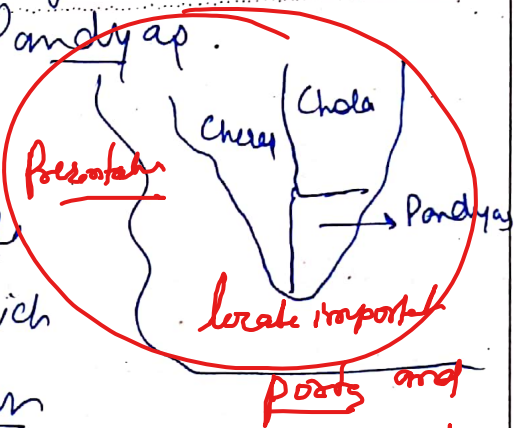 Pandyas.
Chola
Cheras
Presentation
Pandyas
ich
locate important
ports and